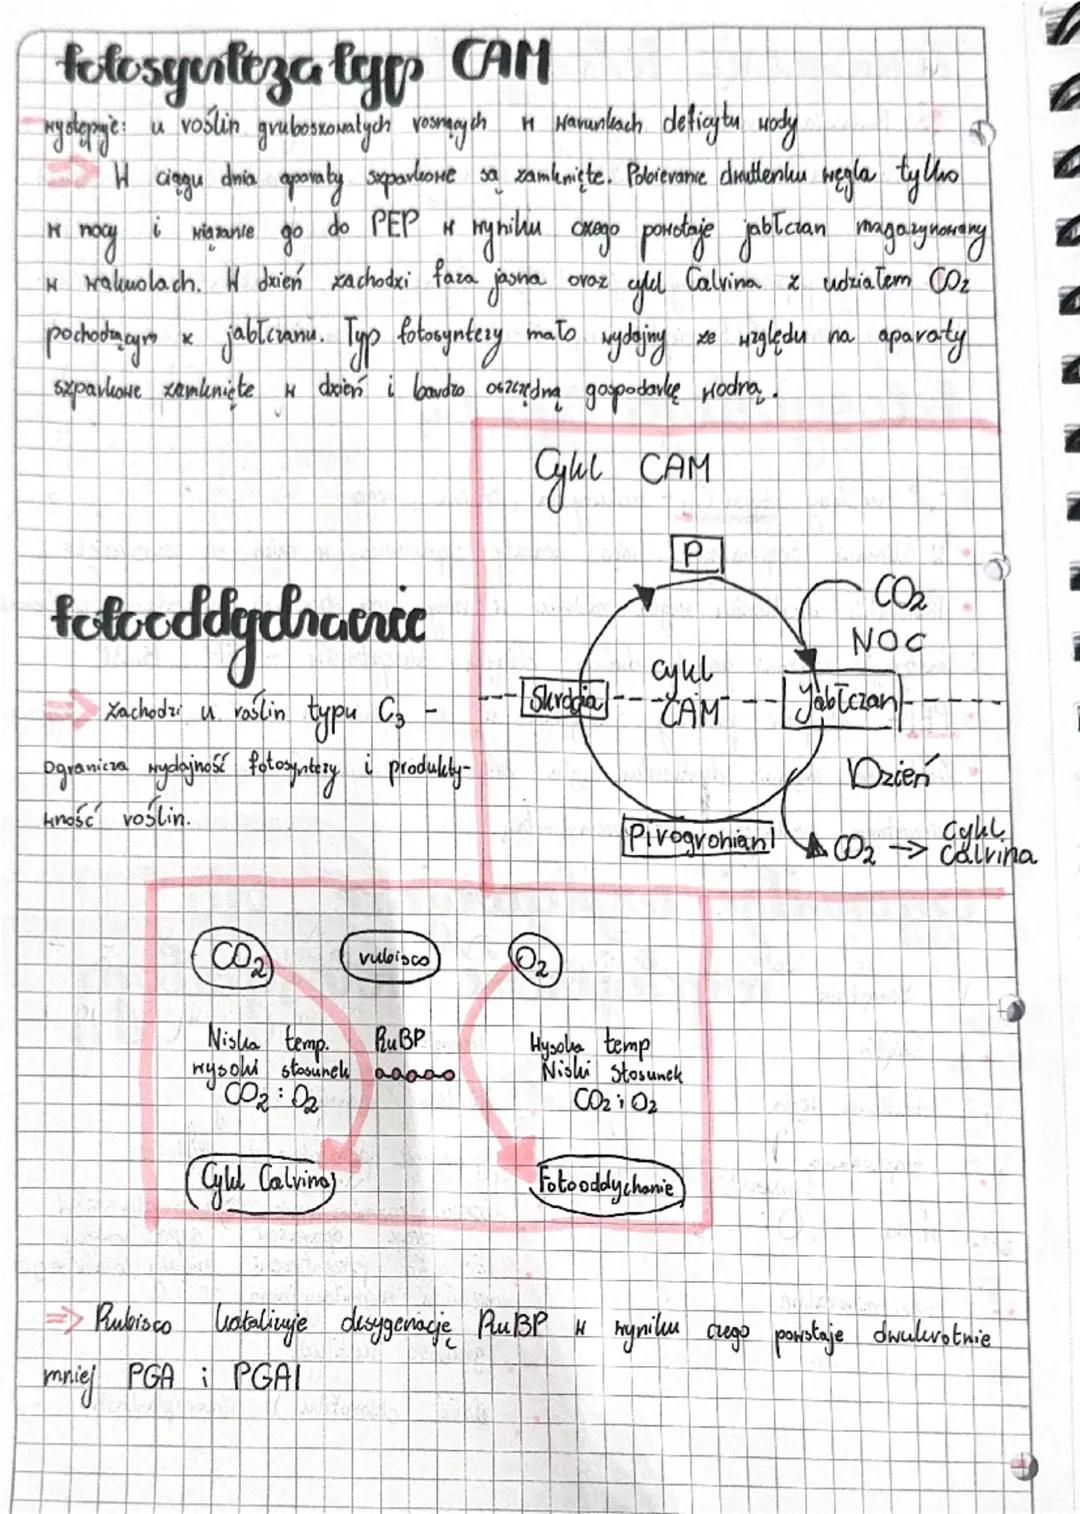 fotosynteza typ CAM
występuje: u roślin gruboszowatych rosnących w warunkach deficytu wody
=> W ciągu dnia aparaty szparkowe są zamknięte. Pobieranie dwutlenku węgla tylko
w nocy i wiązanie go do PEP w wyniku czego powstaje jabłczan magazynowany
w wakuolach. W dzień zachodzi faza jasna oraz cykl Calvina z udziałem CO₂
pochodzącym z jabłczanu. Typ fotosyntezy mało wydajny ze względu na aparaty
szparkowe zamknięte w dzień i bardzo oszczędną gospodarkę wodną.
Cykl CAM
P
CO₂
NOC
Skrobia
cykl
CAM
Jabłczan
Dzień
Pirogronian
CO₂ → Cykl
Calvina
fotooddychanie
=> Zachodzi u roślin typu C₃ -
ogranicza wydajność fotosyntezy i produkty-
wność roślin.
CO₂ rubisco O₂
Niska temp. RuBP Wysoka temp
wysoki stosunek Niski stosunek
CO₂ : O₂ CO₂ : O₂
Cykl Calvina Fotooddychanie
=> Rubisco katalizuje desygenację RuBP w wyniku czego powstaje dwukrotnie
mniej PGA i PGAl